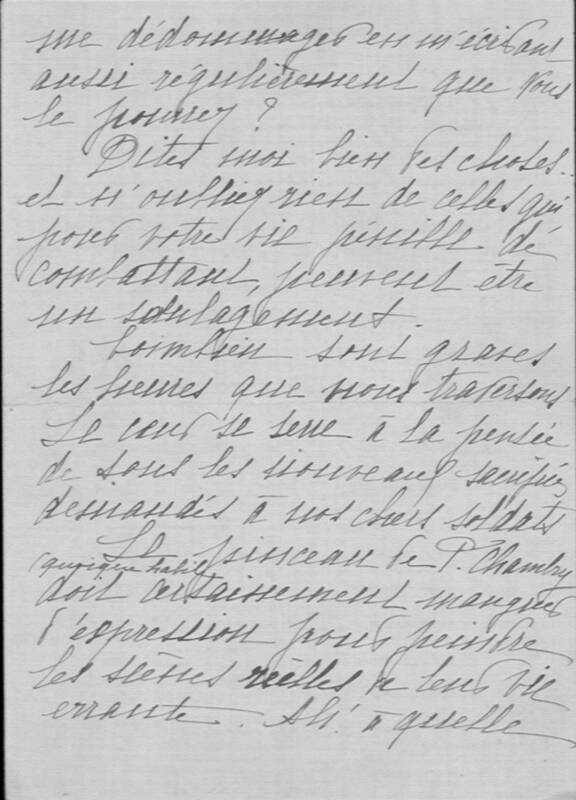 me dédommager en m'écrivant
aussi régulièrement que vous
le pourrez ?
Dites moi bien des choses
et n'oubliez rien de celles qui
pour votre vie pénible de
combattant, peuvent être
un soulagement.
Combien sont graves
les heures que nous traversons
Le cœur se serre à la pensée
de tous les nouveaux sacrifices
demandés à nos chers soldats
Le pinceau de P. Chambry
quoique habile
doit certainement manquer
d'expression pour peindre
les scènes réelles de leur vie
errante. Ah! à quelle